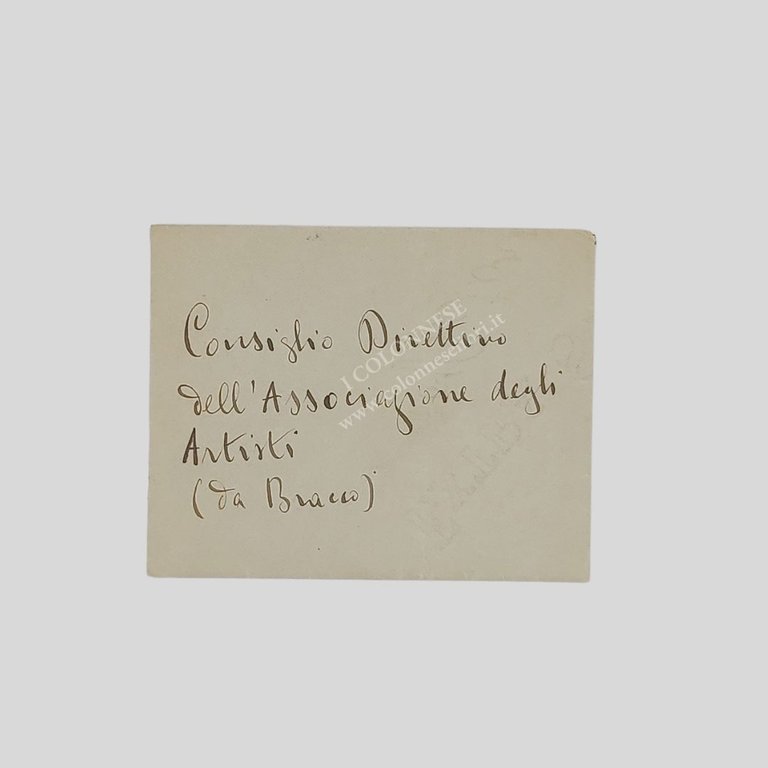 Consiglio Direttivo
dell'Associazione degli
Artisti
(da Bracco)
I COLONNESE
www.colonneselibri.it